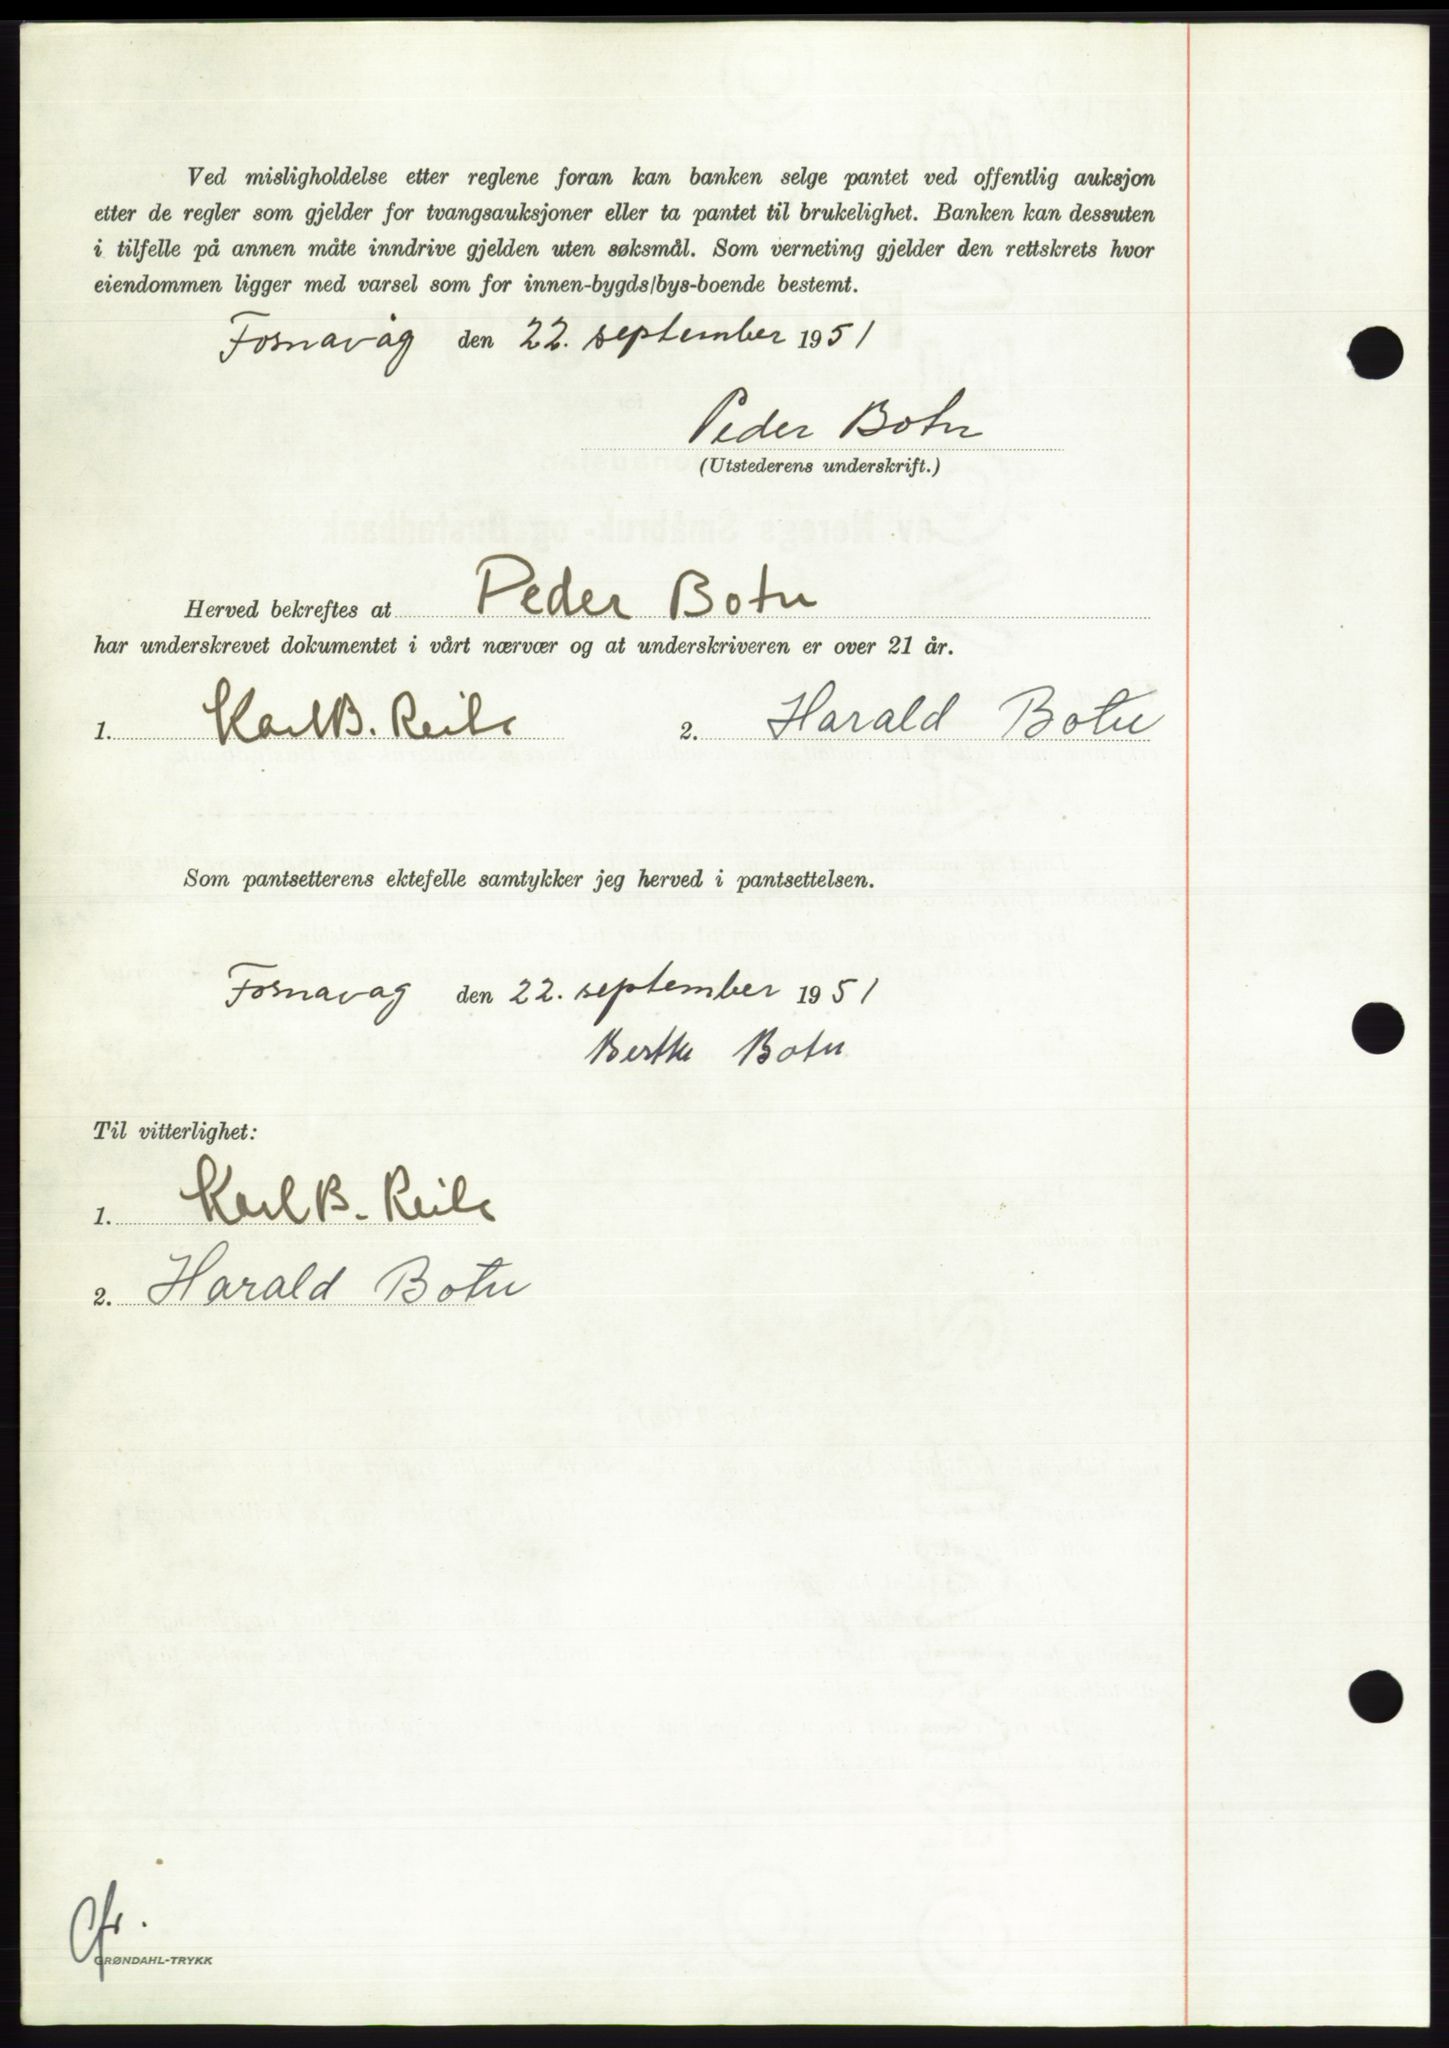 Ved misligholdelse etter reglene foran kan banken selge pantet ved offentlig auksjon
etter de regler som gjelder for tvangsauksjoner eller ta pantet til brukelighet. Banken kan dessuten
i tilfelle på annen måte inndrive gjelden uten søksmål. Som verneting gjelder den rettskrets hvor
eiendommen ligger med varsel som for innen-bygds/bys-boende bestemt.
Fosnavåg den 22. september 1951
Peder Botn
(Utstederens underskrift.)
Herved bekreftes at Peder Botn
har underskrevet dokumentet i vårt nærvær og at underskriveren er over 21 år.
1. Karl B. 2. Harald Botn
Som pantsetterens ektefelle samtykker jeg herved i pantsettelsen.
Fosnavag den 22. september 1951
Berthe Botn
Til vitterlighet:
1. Karl B.
2. Harald Botn
GRØNDAHL-TRYKK